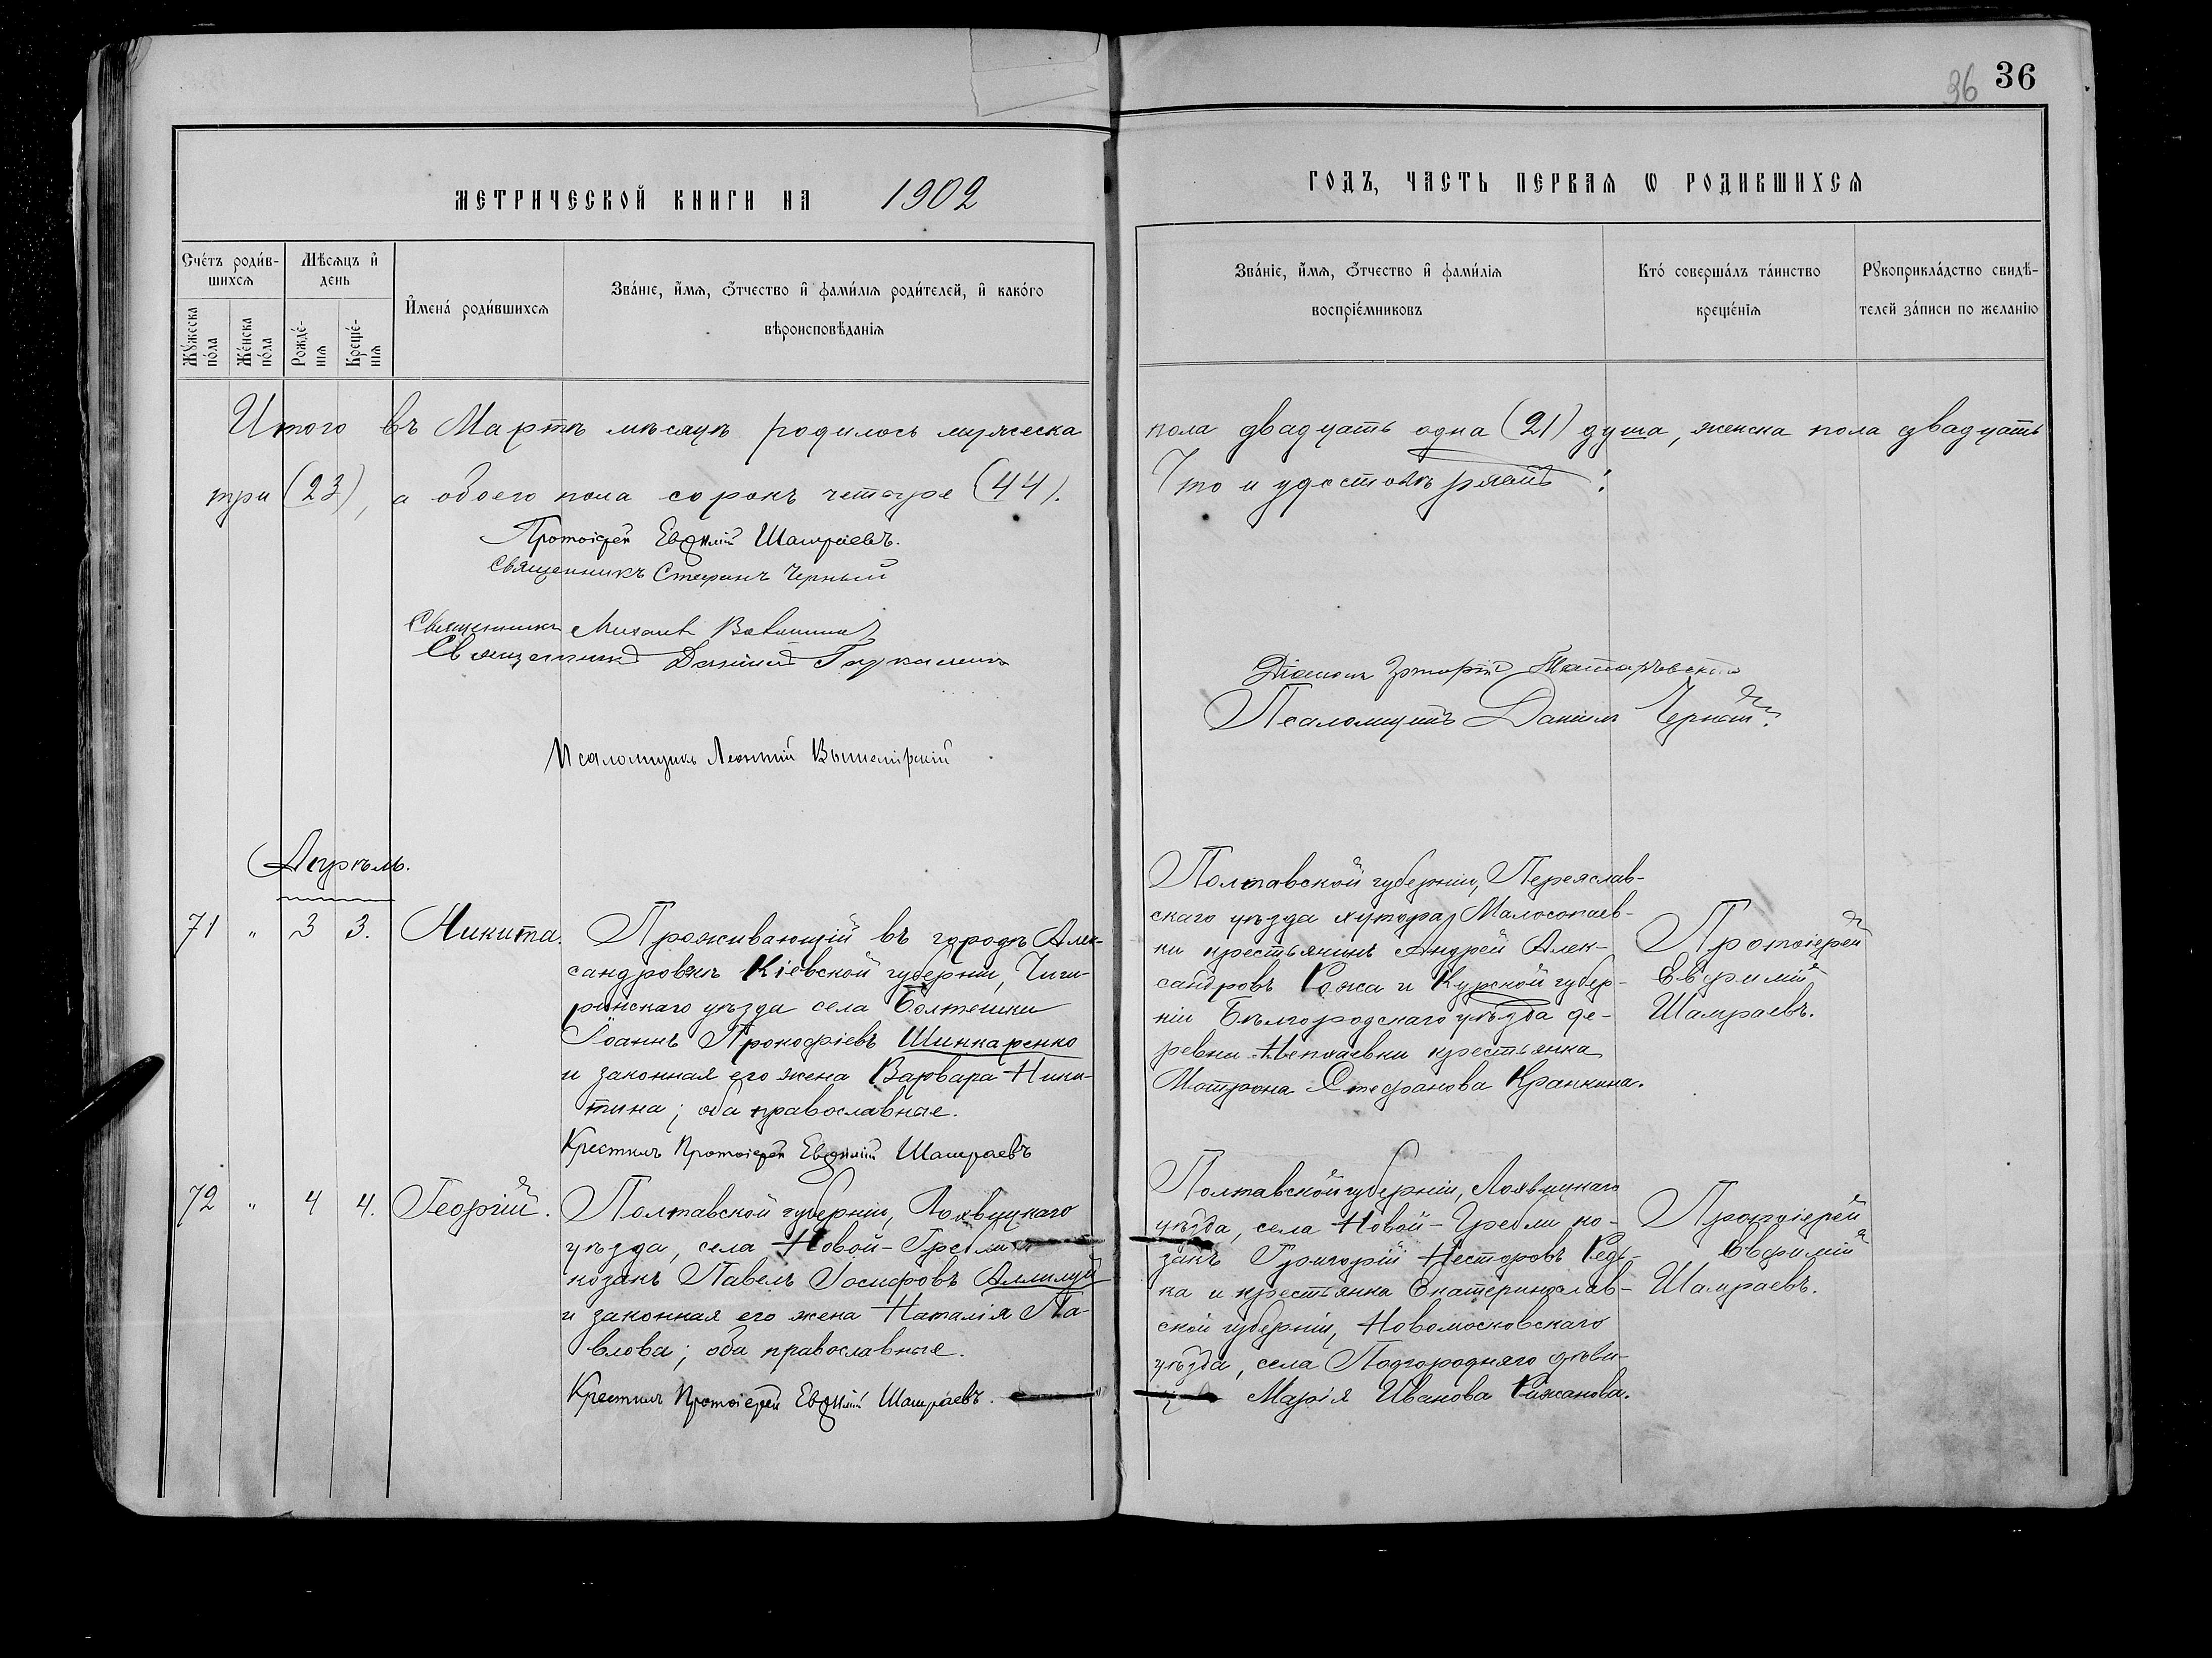 36 36
МЕТРИЧЕСКОЙ КНИГИ НА 1902
ГОДЪ, ЧАСТЬ ПЕРВАЯ Ѡ РОДИВШИХСЯ
Счетъ родив-
шихся
Мѣсяцъ и
день
Мужеска
пола
Женска
пола
Рожде-
нія
Креще-
нія
Имена родившихся
Званіе, имя, отчество и фамилія родителей, и какого
вѣроисповѣданія
Званіе, имя, отчество и фамилія
воспріемниковъ
Кто совершалъ таинство
крещенія
Рукоприкладство свидѣ-
телей записи по желанію
Итого въ Мартѣ мѣсяцѣ родилось мужеска
пола двадцать одна (21) душа, женска пола двадцать
три (23), а обоего пола сорокъ четыре (44).
Что и удостовѣряемъ:
Протоіерей Евѳимій Шамраевъ.
Священникъ Стефанъ Черный
Священникъ Михаилъ
Священникъ Даніилъ
Діаконъ Григорій
Псаломщикъ Даніилъ Черный.
Псаломщикъ Леонтій Вышемірскій
Апрѣль.
71 " 3 3. Никита.
Проживающій въ городѣ Алек-
сандровкѣ Кіевской губерніи, Чиги-
ринскаго уѣзда села Болтышки
Іоаннъ Прокофіевъ Шинкаренко
и законная его жена Варвара Ники-
тина; оба православные.
Крестилъ Протоіерей Евѳимій Шамраевъ
Полтавской губерніи, Переяслав-
скаго уѣзда хутора Малосопаев-
ки крестьянинъ Андрей Алек-
сандровъ Рожа и Курской губер-
ніи Бѣлгородскаго уѣзда де-
ревни Непхаевки крестьянка
Матрона Стефанова Кранкина.
Протоіерей
Евфимій
Шамраевъ.
72 " 4 4. Георгій.
Полтавской губерніи, Лохвицкаго
уѣзда, села Новой-Гребли
козакъ Павелъ Іосифовъ Аллилуй
и законная его жена Наталія Па-
влова; оба православные.
Крестилъ Протоіерей Евѳимій Шамраевъ.
Полтавской губерніи, Лохвицкаго
уѣзда, села Новой-Гребли ко-
закъ Григорій Несторовъ Редь-
ка и крестьянка Екатеринослав-
ской губерніи, Новомосковскаго
уѣзда, села Подгородняго дѣви-
ца Марія Иванова Рижанова.
Протоіерей
Евфимій
Шамраевъ.